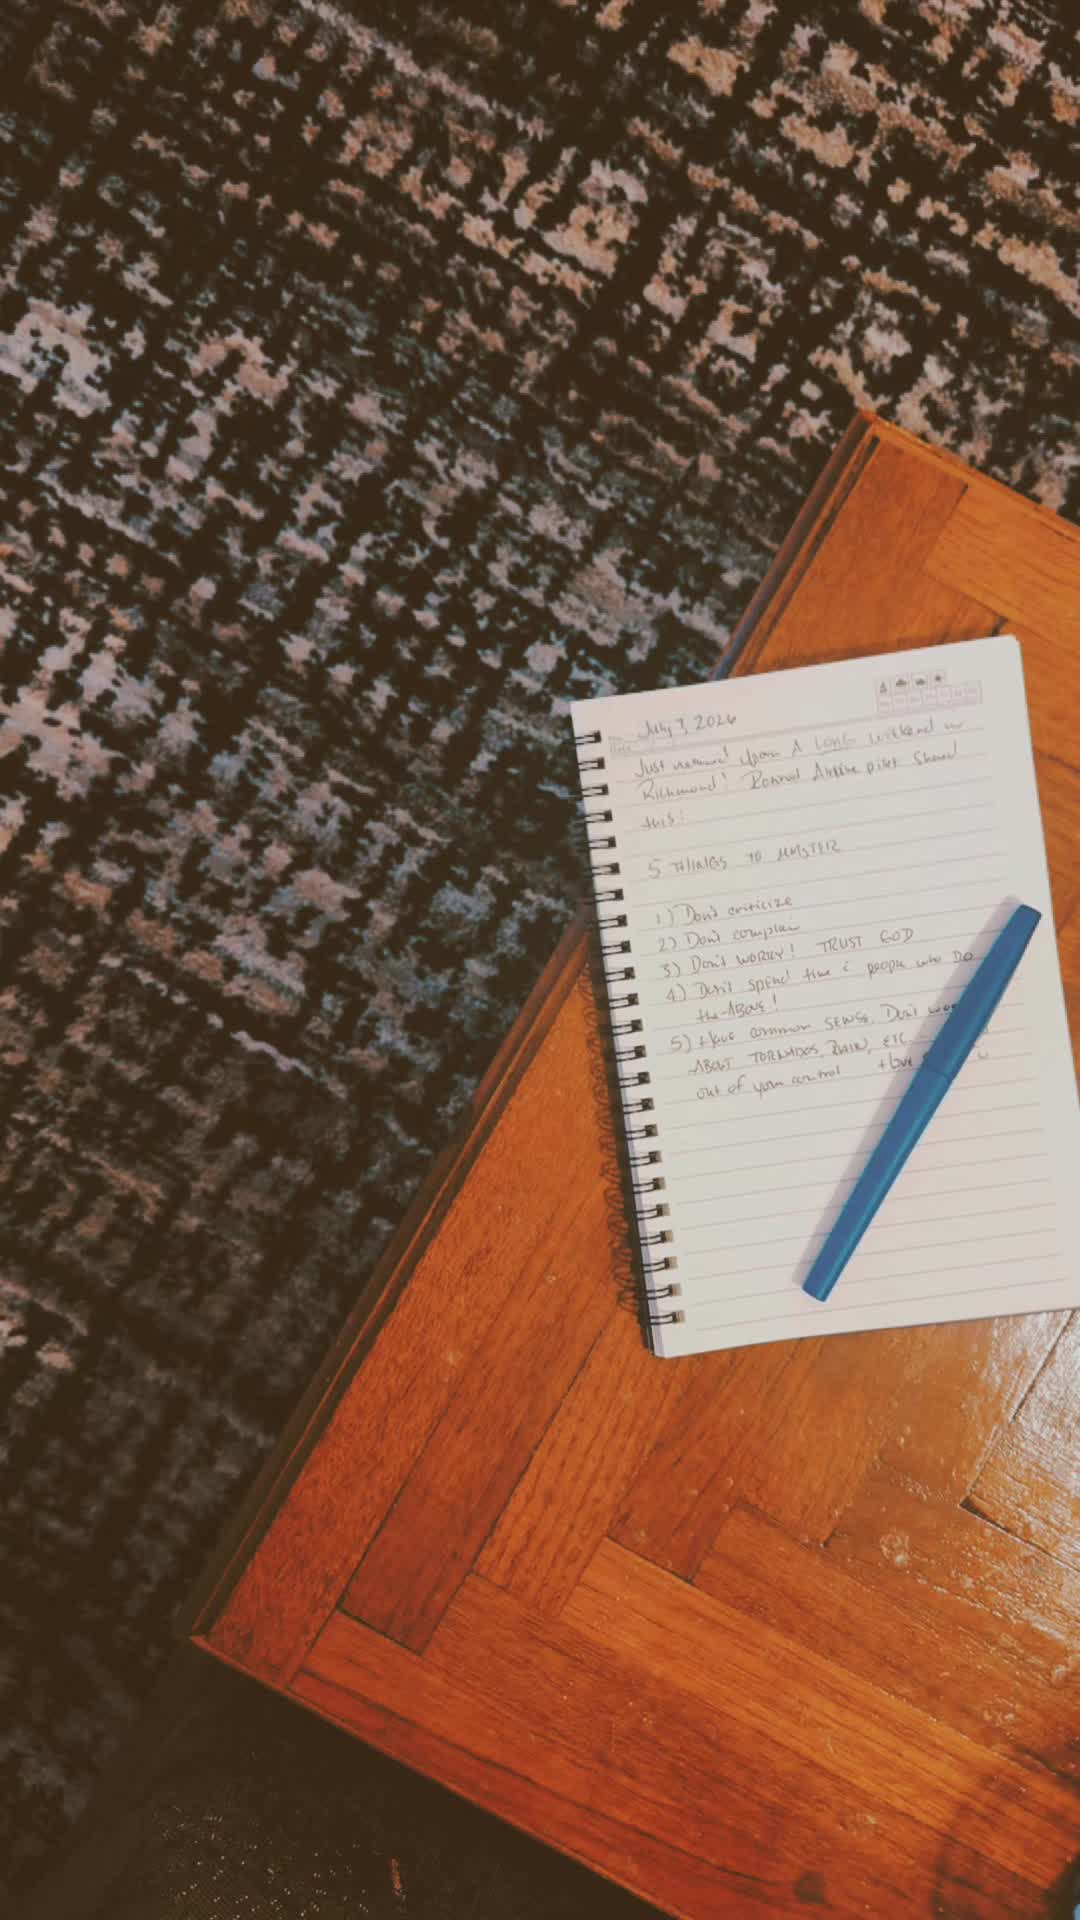 July 7, 2026
Just returned upon A LONG weekend in
Richmond! Retired Airline pilot shared
this:
5 THINGS TO MASTER
1) Don't criticize
2) Don't complain
3) Don't WORRY! TRUST GOD
4) Don't spend time c̄ people who DO
the ABOVE!
5) Have common SENSE. Don't
ABOUT TORNADOS, RAIN, ETC
out of your control